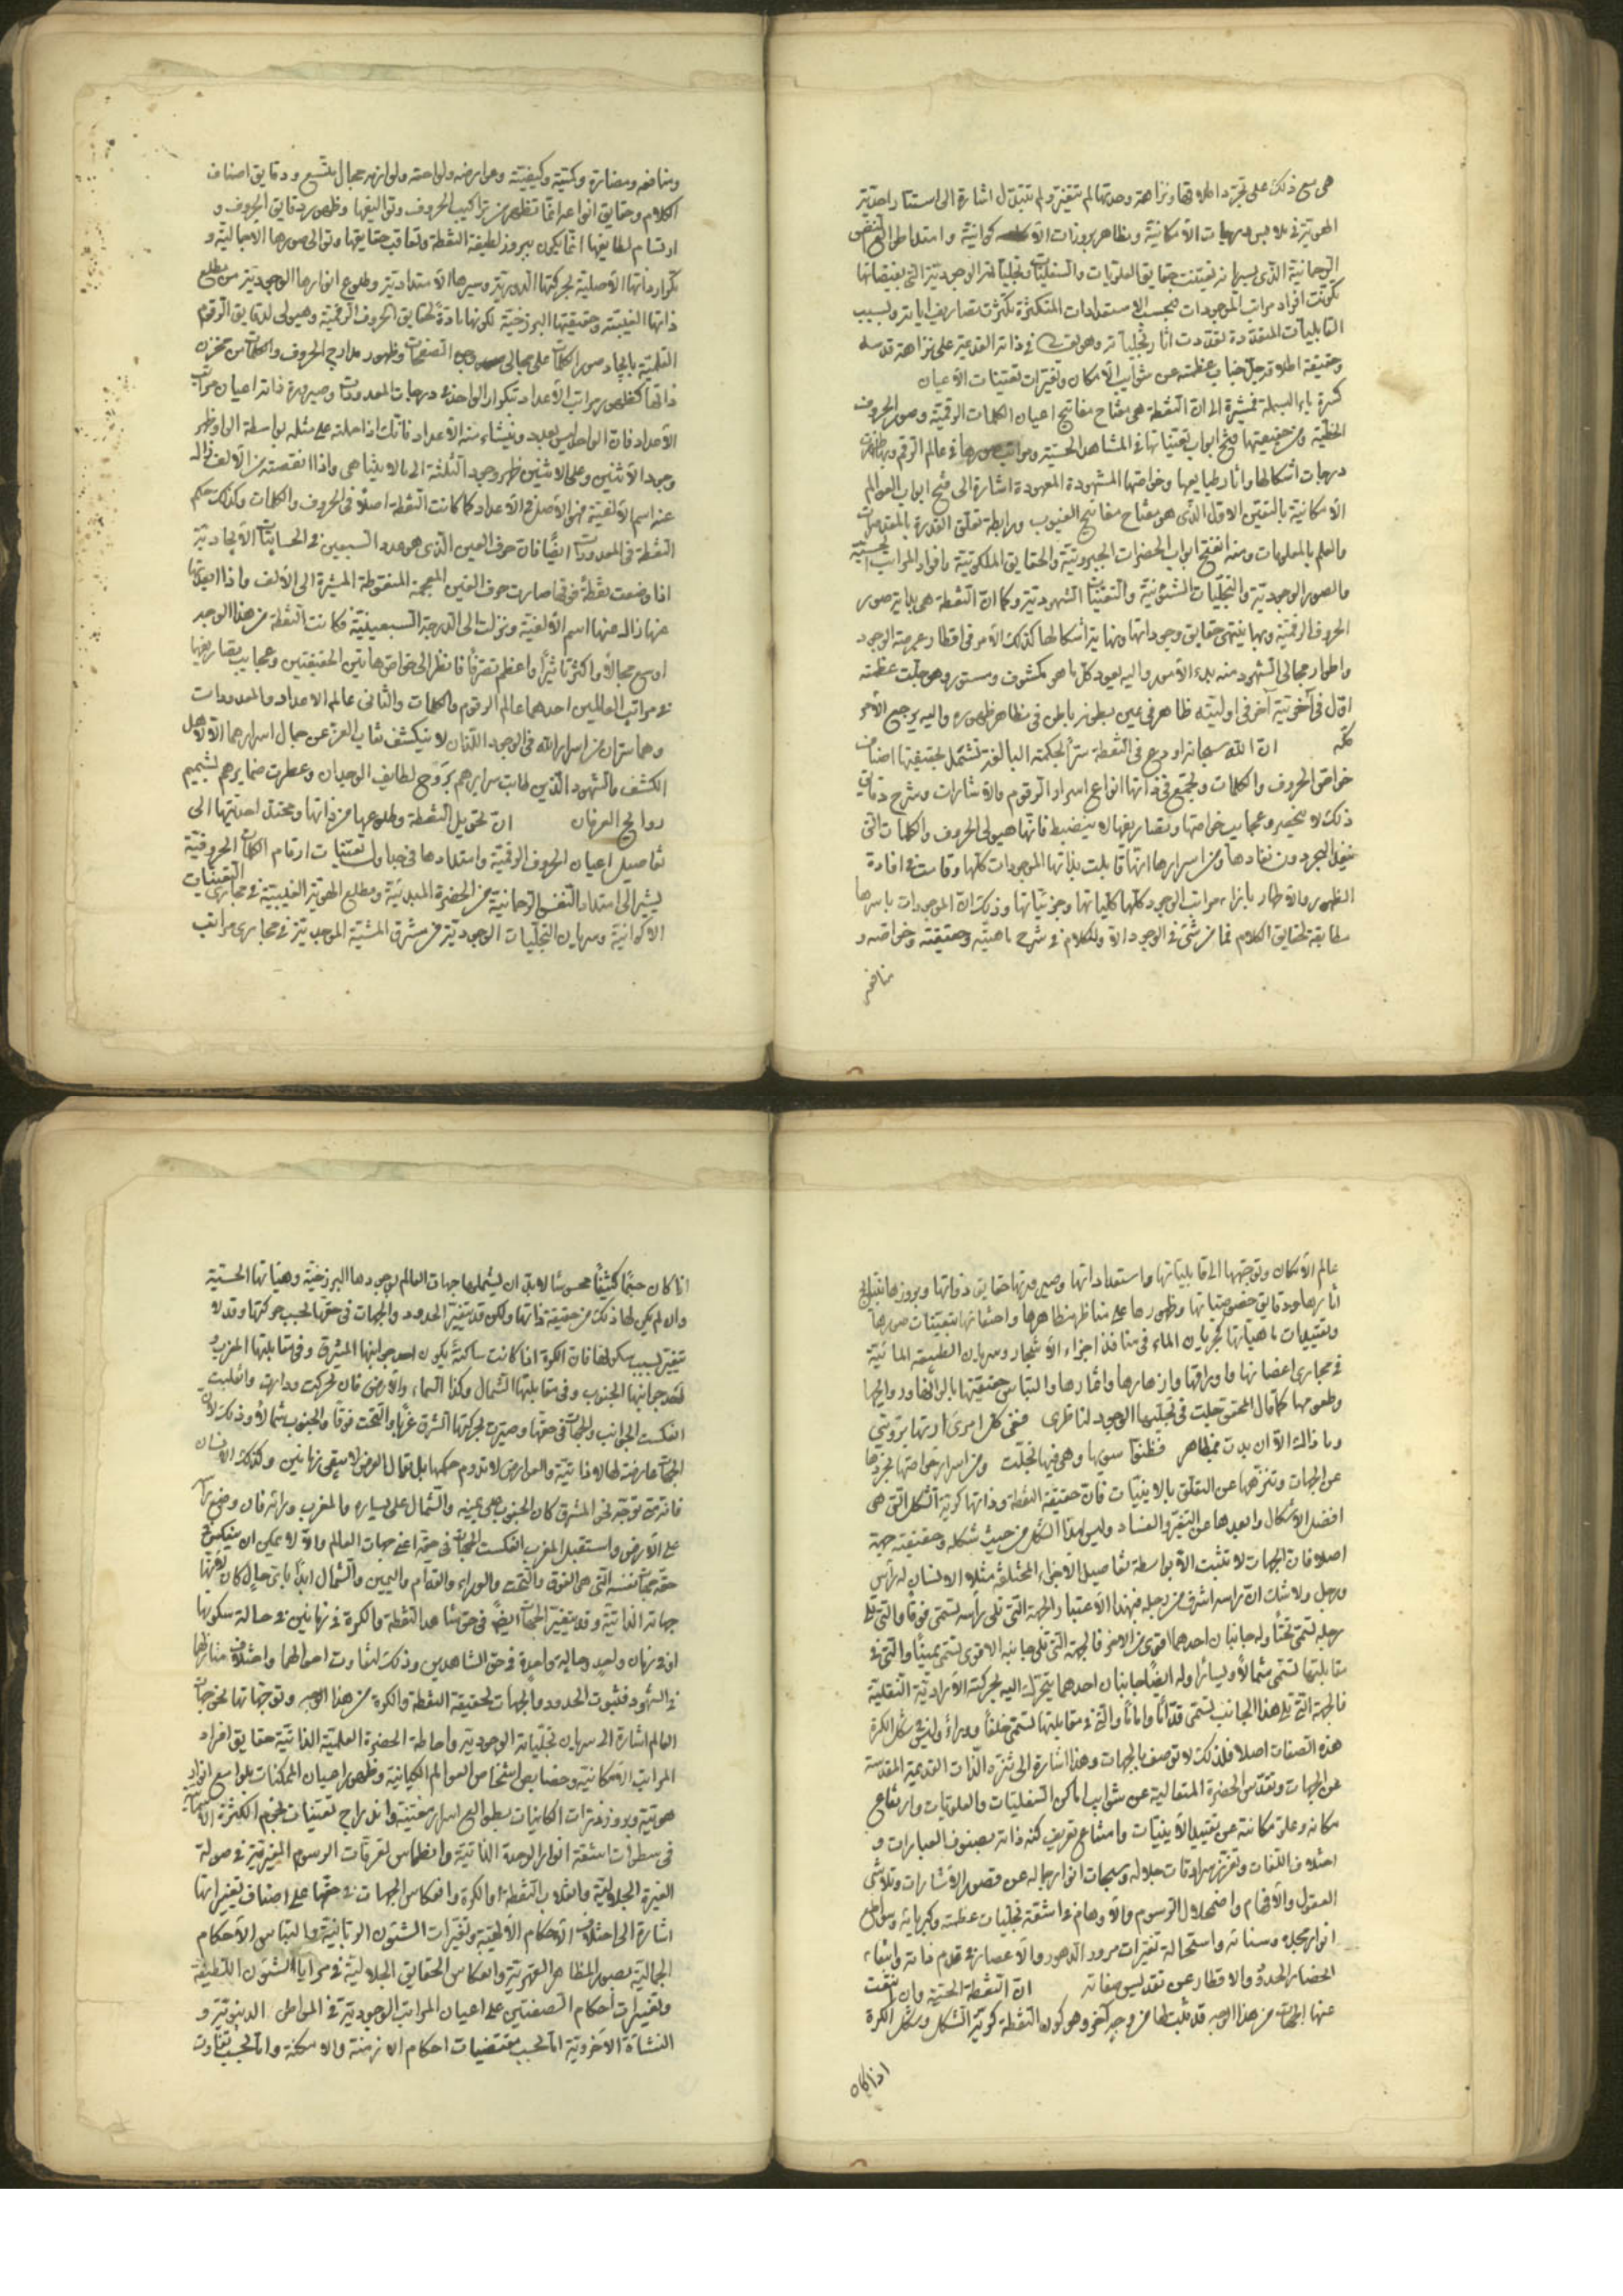 هى مع ذلك على تجرد اطلاقها ونزاهة وحدتها لم تتغير ولم تتبدل اشارة الى استتار احدية
الهوية فى ملابس درجات الامكانية ومظاهر بروزات الاكوانية وامتداد النفس
الرحمانية الذى بسريانه تعينت حقايق العلويات والسفليات وتجليات الوجودية التى بفيضانها
تكونت افراد مراتب الموجودات بحسب الاستعدادات المتكثرة تكثرت تصاريف اياته وبسبب
القابليات المتعددة تعددت اثار تجلياته وهو تعالى فى ذاته القدمية على نزاهة قدسه
وحقيقة اطلاقه جل جناب عظمته عن شوايب الامكان وتغيرات تعينات الاعيان
كسرة باء البسملة مشيرة الى ان النقطة هى مفتاح مفاتيح اعيان الكلمات الرقمية وصور الحروف
الخطية ومن حقيقتها فتح ابواب تعيناتها فى المشاهد الحسية ومراتب صورها فى عالم الرقم
درجات اشكالها واثار طبايعها وخواصها المشهودة المعهودة اشارة الى فتح ابواب العوالم
الامكانية بالتعين الاول الذى هو مفتاح مفاتيح الغيوب ورابطة تعلق القدرة بالمقدورات
والعلم بالمعلومات ومنه انفتح ابواب الحضرات الجبروتية والحقايق الملكوتية وافراد المراتب الحسية
والصور الوجودية والتجليات الشئونية والتعينات الشهودية وكما ان النقطة هى بداية صور
الحروف الرقمية وبها ينتهى حقايق وجوداتها ونهاية اشكالها كذلك الامر فى اقطار عرصة الوجود
واطوار مجالى الشهود منه بدء الامور واليه يعود كل ما هو مكشوف ومستور وهو جلت عظمته
اول فى آخريته آخر فى اوليته ظاهر فى عين بطونه باطن فى مظاهر ظهوره واليه يرجع الامر
كله ان الله سبحانه اودع فى النقطة سر الحكمة البالغة تشتمل بحقيقتها اصناف
خواص الحروف والكلمات وتجتمع فى ذاتها انواع اسرار الرقوم والاشارات وشرح دقايق
ذلك لا ينحصر وعجايب خواصها وتصاريفها لا ينضبط فانها هيولى الحروف والكلمات التى
ينفد البحر دون نفادها ومن اسرارها انها قابلت بذاتها الموجودات كلها وقامت فى افادة
الظهور والاظهار بازاء مراتب الوجود كلها كلياتها وجزئياتها وذلك ان الموجودات باسرها
مطابقة لحقايق الكلام فما من شئ فى الوجود الا وللكلام فى شرح ماهيته وحقيقته وخواصه و
منافعه
ومنافعه ومضاره وكميته وكيفيته وعوارضه ولواحقه ولوازمه مجال متسع ودقايق اصناف
الكلام وحقايق انواعه انما تظهر من تراكيب الحروف وتواليفها وظهور دقايق الحروف و
ارتسام لطايفها انما يكون ببروز لطيفة النقطة وتعاقب حقايقها وتوالى صورها الاجمالية و
تكرار ذاتها الاصلية بحركتها الدورية وسيرها الامتدادية وطلوع انوارها الوجودية من مطلع
ذاتها الغيبية وحقيقتها البرزخية لكونها مادة لحقايق الحروف الرقمية وهيولى لدقايق الرقوم
القلمية بايجاد صور الكلمات على مجالى وجه الصفحات وظهور مدارج الحروف والكلمات من مخزن
ذاتها كظهور مراتب الاعداد بتكرار الواحد فى درجات المعدودات وصيرورة ذاته اعيان مراتب
الاعداد فان الواحد ليس بعدد وينشاء منه الاعداد فانك اذا حملته على مثله بواسطة الواو ظهر
وجود الاثنين وعلى الاثنين ظهر وجود الثلثة الى ما لا يتناهى واذا نقصته من الالف زال
عنه اسم الالفية فهو الاصل فى الاعداد كما كانت النقطة اصلا فى الحروف والكلمات وكذلك حكم
النقطة فى المعدودات ايضا فان حرف العين الذى هو عدد السبعين فى الحسابيات الابجادية
اذا وضعت نقطة فوقها صارت حرف الغين المعجمة المنقوطة المشيرة الى الالف واذا ابعدتها
عنها زال منها اسم الالفية ونزلت الى الدرجة السبعينية فكانت النقطة من هذا الوجه
اوسع مجالا واكثر تاثيرا واعظم تصرفا فانظر الى خواص هاتين الحقيقتين وعجايب تصاريفها
فى مراتب العالمين احدهما عالم الرقوم والكلمات والثانى عالم الاعداد والمعدودات
وهما سران من اسرار الله فى الوجود اللذان لا ينكشف نقاب العزة عن جمال اسرارهما الا لاهل
الكشف والشهود الذين طابت سرايرهم بروح لطايف الوجدان وعطرت ضمايرهم بشميم
روايح العرفان ان تحويل النقطة وطلوعها من ذاتها ومحتد احديتها الى
تفاصيل اعيان الحروف الرقمية وامتدادها فى جداول تعينات ارقام الكلمات الحروفية
يشير الى امتداد النفس الرحمانية من الحضرة المبدئية ومطلع الهوية الغيبية فى مجارى التعينات
الاكوانية وسريان التجليات الوجودية من مشرق المشية الموجدية فى مجارى مراتب
عالم الامكان وتوجهها الى قابلياتها واستعداداتها وصيرورتها حقايق ذواتها وبروزها بنتايج
اثارها ودقايق خصوصياتها وظهورها على مناظر مظاهرها واختفائها بتعينات صورها
وتقييدات ماهياتها كجريان الماء فى منافذ اجزاء الاشجار وسريان الطبيعة المائية
فى مجارى اغصانها واوراقها وازهارها واثمارها والتباس حقيقتها بالوانها وروايحها
وطعومها كما قال المحقق جلت فى تجليها الوجود لناظرى ففى كل مرئى اراها برؤيتى
وما ذاك الا ان بدت بمظاهر فظنوا سويها وهى فيها تجلت ومن اسرار خواصها تجردها
عن الجهات وتنزهها عن التعلق بالاينيات فان حقيقة النقطة وذاتها كروية الشكل التى هى
افضل الاشكال وابعدها عن التغير والفساد وليس لهذا الشكل من حيث شكله وحقيقته جهة
اصلا فان الجهات لا تثبت الا بواسطة تفاصيل الاجزاء المختلفة مثلا الانسان له راس
ورجل ولا شك ان راسه اشرف من رجله فبهذا الاعتبار الجهة التى تلى راسه تسمى فوقا والتى تلى
رجله تسمى تحتا وله جانبان احدهما اقوى من الاخر فالجهة التى تلى جانبه الاقوى تسمى يمينا والتى فى
مقابلتها تسمى شمالا ويسارا وله ايضا جانبان احدهما يتحرك اليه بحركته الارادية النقلية
فالجهة التى تلى هذا الجانب تسمى قداما واماما والتى فى مقابلتها تسمى خلفا ووراء وليس شكل الكرة
هذه الصفات اصلا فلذلك لا توصف بالجهات وهذا اشارة الى تنزه الذات القدمية المقدسة
عن الجهات وتقدس الحضرة المتعالية عن شوايب اماكن السفليات والعلويات وارتفاع
مكانه وعلو مكانته عن تقييد الاينيات وامتناع تعريف كنه ذاته بصنوف العبارات و
اختلاف اللغات وتعزز سرادقات جلاله وسبحات انوار جماله عن قصور الاشارات وتلاشى
العقول والافهام واضمحلال الرسوم والاوهام فى اشعة تجليات عظمته وكبريائه وسواطع
انوار مجده وسنائه واستحالة تغيرات مرور الدهور والاعصار فى قدم ذاته وابقاء
انحصار الحدود والاقطار عن تقديس صفاته ان النقطة الحسية وان انتفت
عنها الجهات من هذا الوجه قد ثبت لها من وجه آخر وهو كون النقطة كروية الشكل وشكل الكرة
اذا كان
اذا كان جسما كثيفا محسوسا لا بد ان يشملها جهات العالم لوجودها البرزخية وهيئاتها الحسية
وان لم يكن لها ذلك من حقيقة ذاتها ولكن قد يتغير الحدود والجهات فى حقها بحسب حركتها وقد لا
يتغير بسبب سكونها فان الكرة اذا كانت ساكنة يكون احد جوانبها المشرق وفى مقابلتها المغرب و
احد جوانبها الجنوب وفى مقابلتها الشمال وكذا السماء والارض فان تحركت ودارت وانقلبت
انعكست الجوانب والجهات فى حقها وصيرت بحركتها الشرق غربا والتحت فوقا والجنوب شمالا وذلك لان
الجهات عارضة لها لا ذاتية والعوارض لا تدوم حكمها بل يقال العرض لا يبقى زمانين وكذلك الانسان
فانه متى توجه نحو المشرق كان الجنوب على يمينه والشمال على يساره والمغرب ورائه فان وضع
على الارض واستقبل المغرب انعكست الجهات فى حقه اعنى جهات العالم والا لا يمكن ان ينعكس فى
حقه جهات نفسه التى هى الفوق والتحت والوراء والقدام واليمين والشمال ابدا باى حال كان
جهاته الذاتية وقد يتغير الجهات ايضا فى حق مشاهد النقطة والكرة فى زمانين فى حالة سكونها
او فى زمان واحد وحالة واحدة فى حق الشاهدين وذلك لتفاوت احوالهما واختلاف مناظرهما
فى الشهود فثبوت الحدود والجهات لحقيقة النقطة والكرة من هذا الوجه وتوجهاتها نحو جهات
العالم اشارة الى سريان تجلياته الوجودية واحاطة الحضرة العلمية الذاتية حقايق افراد
المراتب الامكانية وخصايص اشخاص العوالم الكيانية وظهور اعيان الممكنات بلوامع انوار
هويته وبروز ذرات الكاينات بطوالع اسرار معيته واندراج تعينات نجوم الكثرة الاسمائية
فى سطوات اشعة انوار الوحدة الذاتية وانطماس تفرقات الرسوم الغيرية فى صولة
الغيرة الجلالية وانقلاب النقطة والكرة وانعكاس الجهات فى حقها على اصناف تغييراتها
اشارة الى اختلاف الاحكام الالهية وتغيرات الشئون الربانية والتباس الاحكام
الجمالية بصور المظاهر القهرية وانعكاس الحقايق الجلالية فى مرايا الشئون اللطيفة
وتغييرات احكام الصفتين على اعيان المراتب الوجودية فى المواطن الدنيوية و
النشأة الاخروية اما بحسب مقتضيات احكام الازمنة والامكنة واما بحسب تفاوت